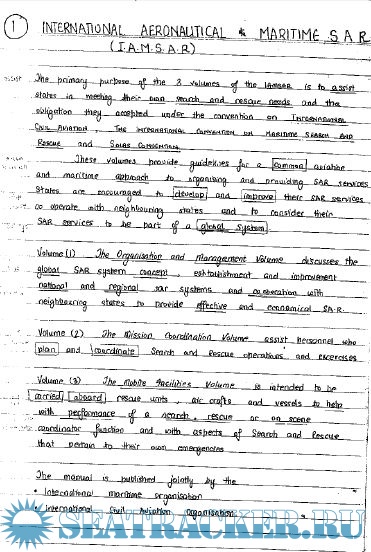 1 INTERNATIONAL AERONAUTICAL & MARITIME S A R
(I.A.M.S.A.R)
assist The primary purpose of the 3 volumes of the IAMSAR is to assist
states in meeting their own search and rescue needs and the
obligation they accepted under the convention on INTERNATIONAL
CIVIL AVIATION, THE INTERNATIONAL CONVENTION ON MARITIME SEARCH AND
RESCUE and SOLAS CONVENTION.
These volumes provide guidelines for a common aviation
and maritime approach to organising and providing SAR services
States are encouraged to develop and improve their SAR services
co operate with neighbouring states and to consider their
SAR services to be part of a global system.
Volume (1) The Organisation and Management Volume discusses the
global SAR system concept, establishment and improvement
national and regional sar systems and co-operation with
neighbouring states to provide effective and economical SAR.
Volume (2) The Mission Coordination Volume assist personnel who
plan and coordinate Search and Rescue operations and excercises
Volume (3) The Mobile Facilities Volume is intended to be
carried aboard rescue units, air crafts and vessels to help
with performance of a search, rescue or on scene
coordinator function and with aspects of Search and Rescue
that pertain to their own emergencies
The manual is published jointly by the
• International maritime organisation
• International Civil Aviation Organisation.
SEATRACKER.RU